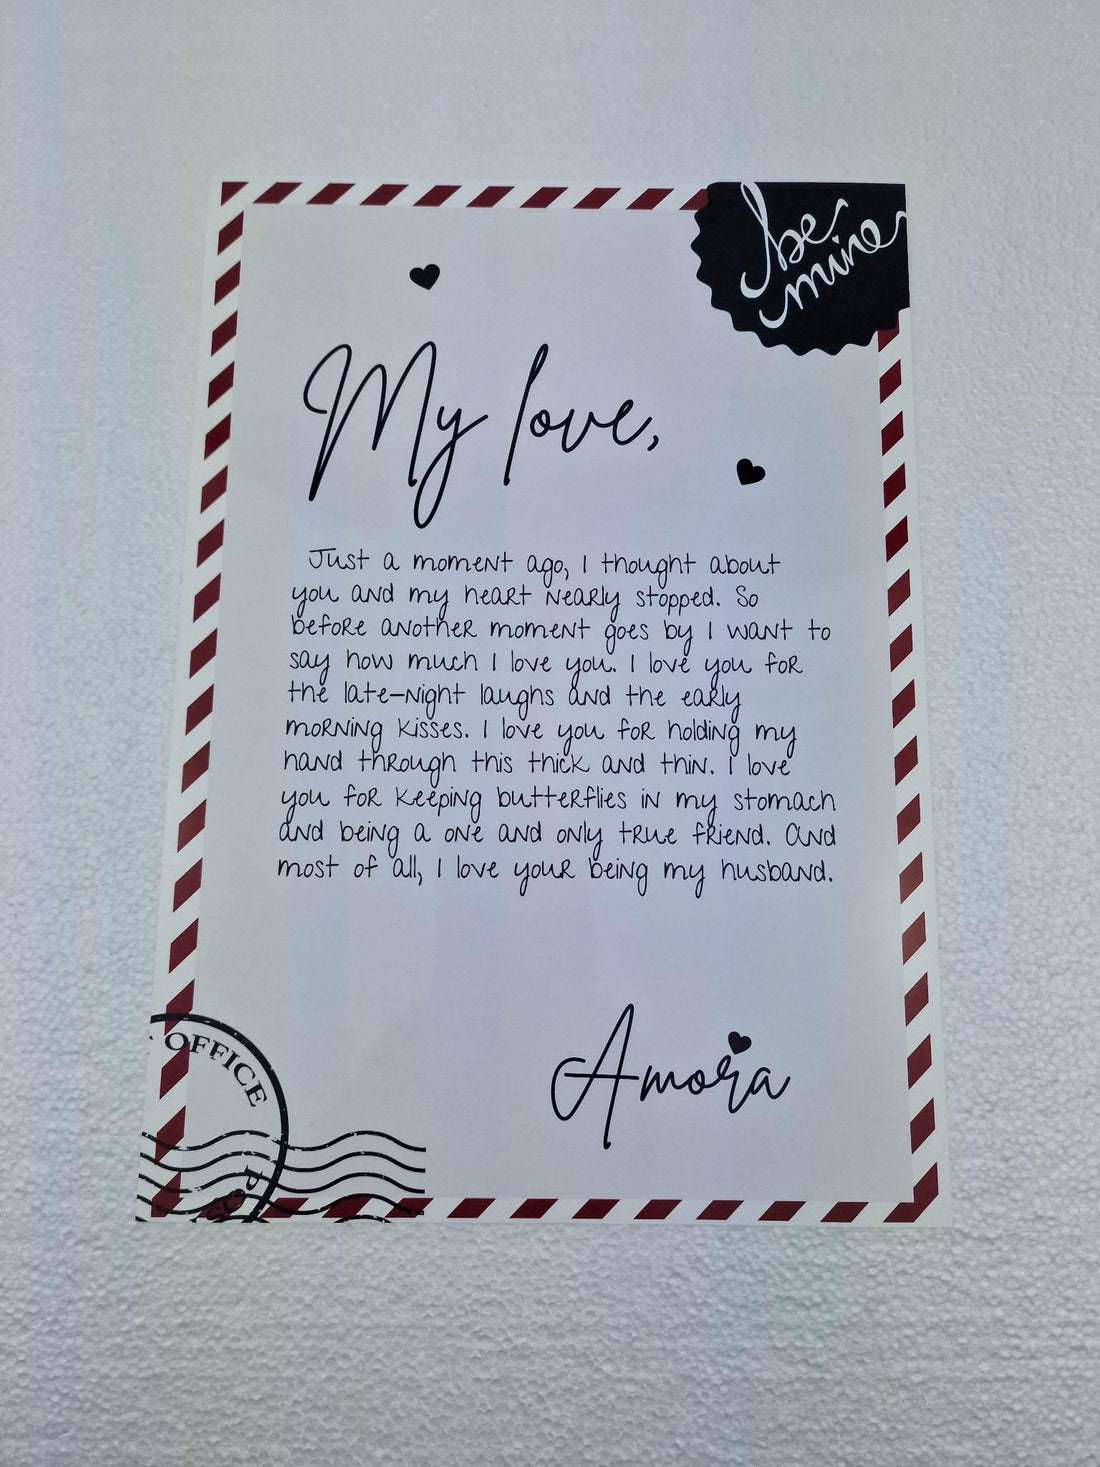 be
mine
My love,
Just a moment ago, I thought about
you and my heart nearly stopped. So
before another moment goes by I want to
say how much I love you. I love you for
the late-night laughs and the early
morning kisses. I love you for holding my
hand through this thick and thin. I love
you for keeping butterflies in my stomach
and being a one and only true friend. And
most of all, I love your being my husband.
Amora
OFFICE